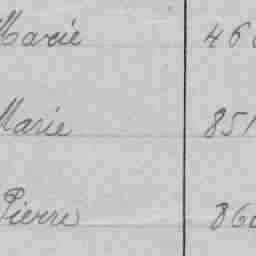 Marie 46
Marie 851
Pierre 860